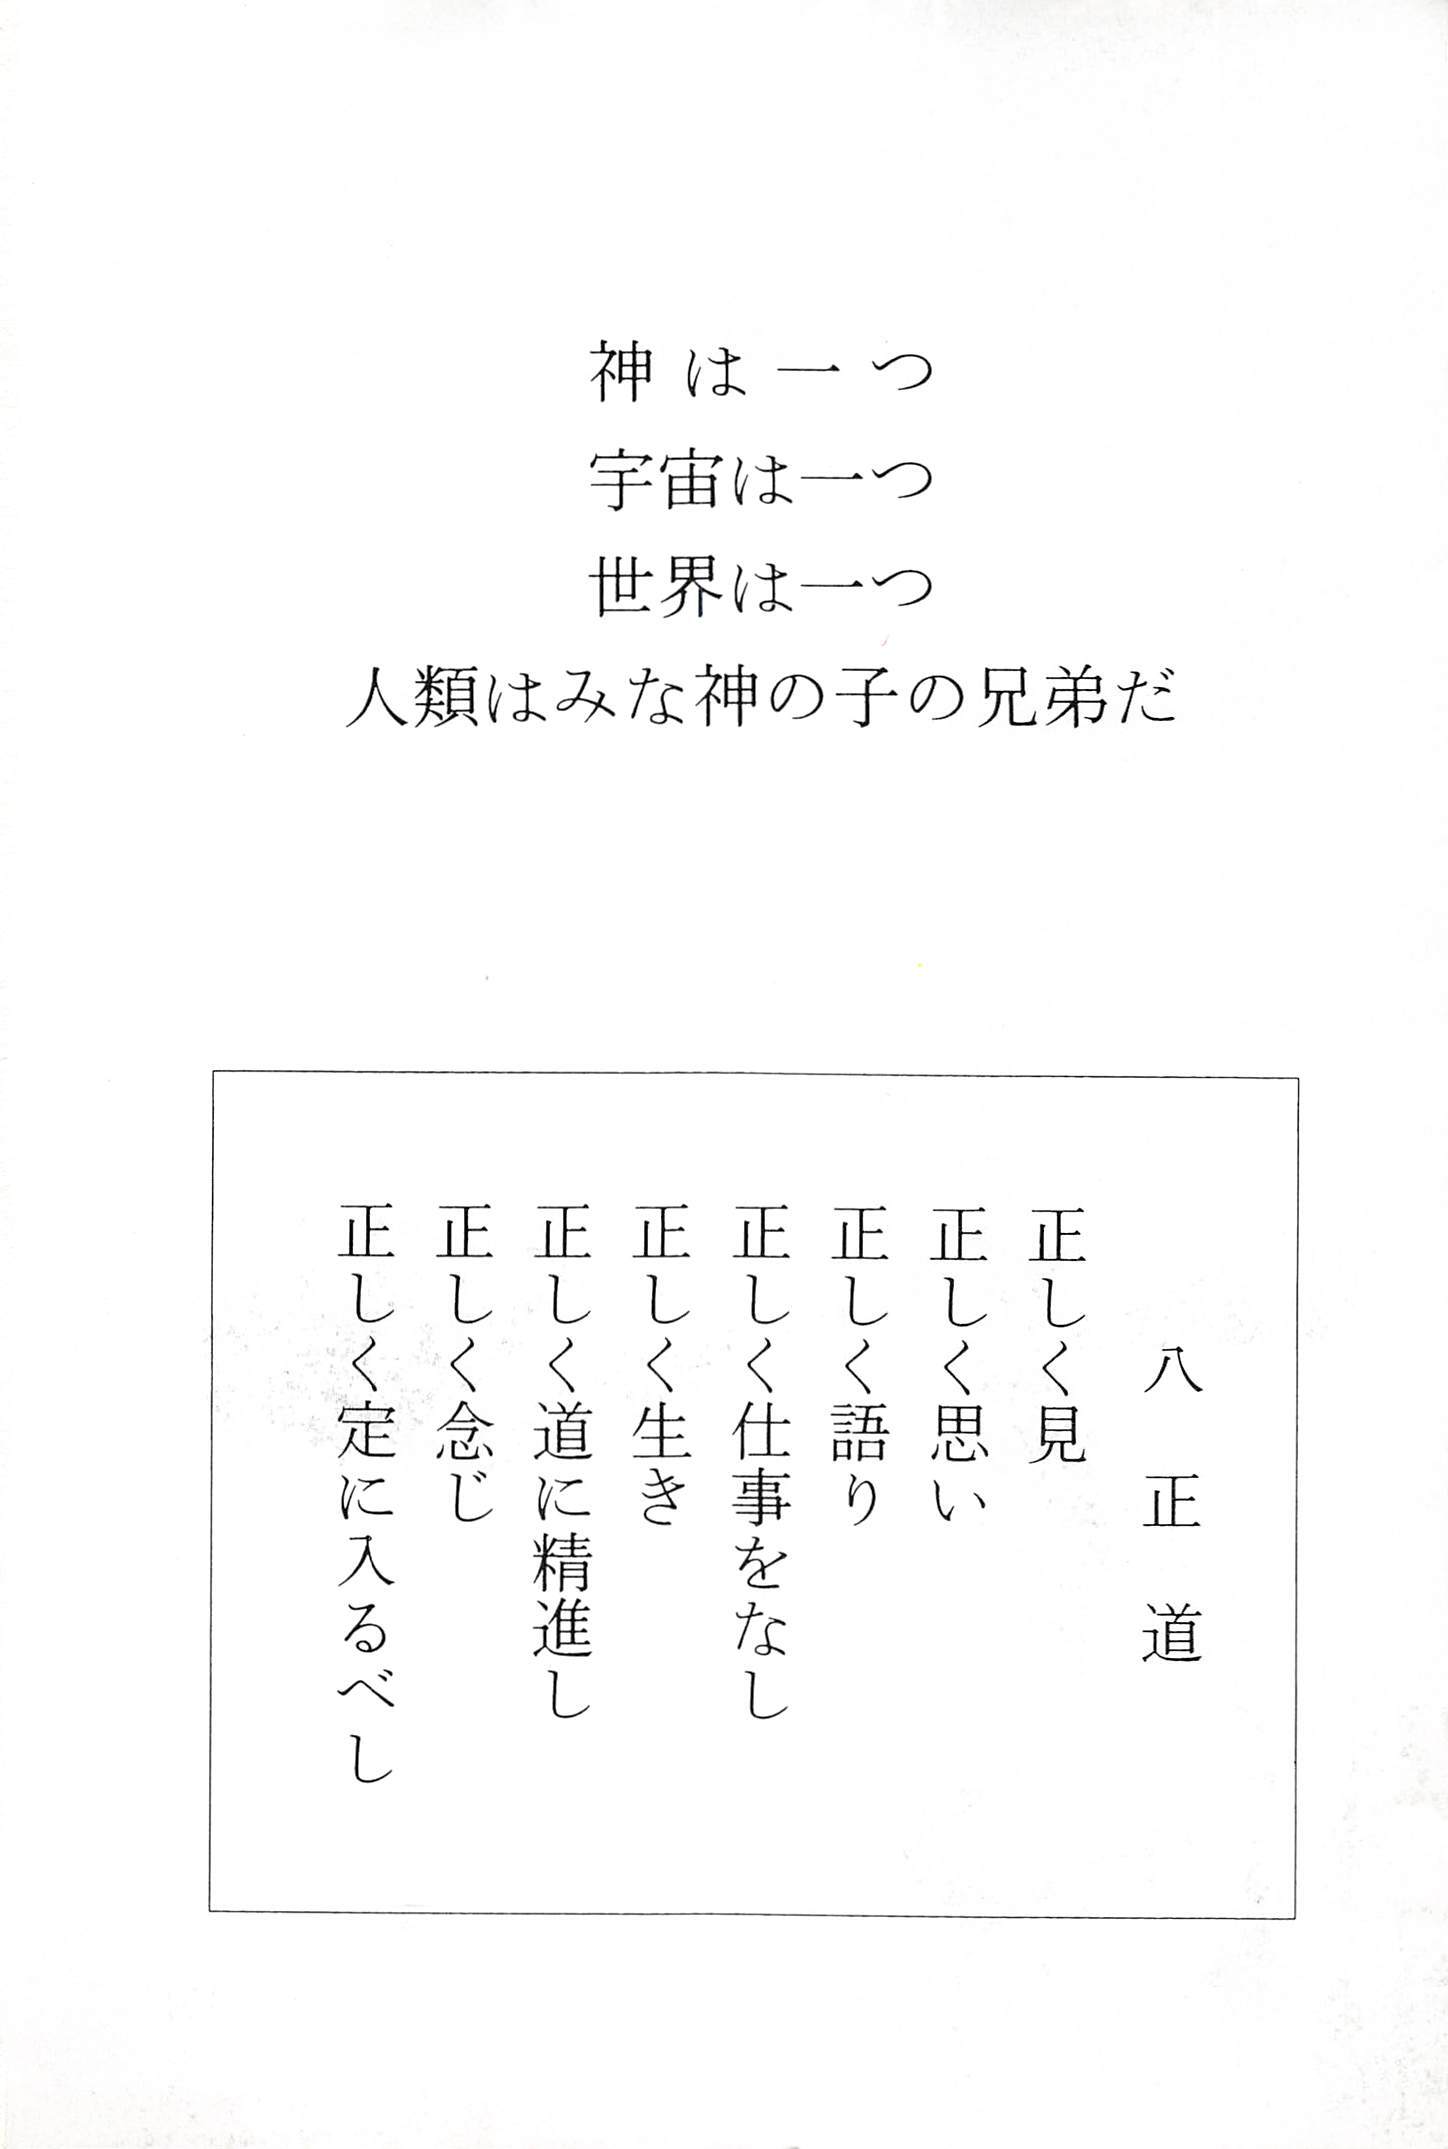 神は一つ
宇宙は一つ
世界は一つ
人類はみな神の子の兄弟だ
八正道
正しく見
正しく思い
正しく語り
正しく仕事をなし
正しく生き
正しく道に精進し
正しく念じ
正しく定に入るべし